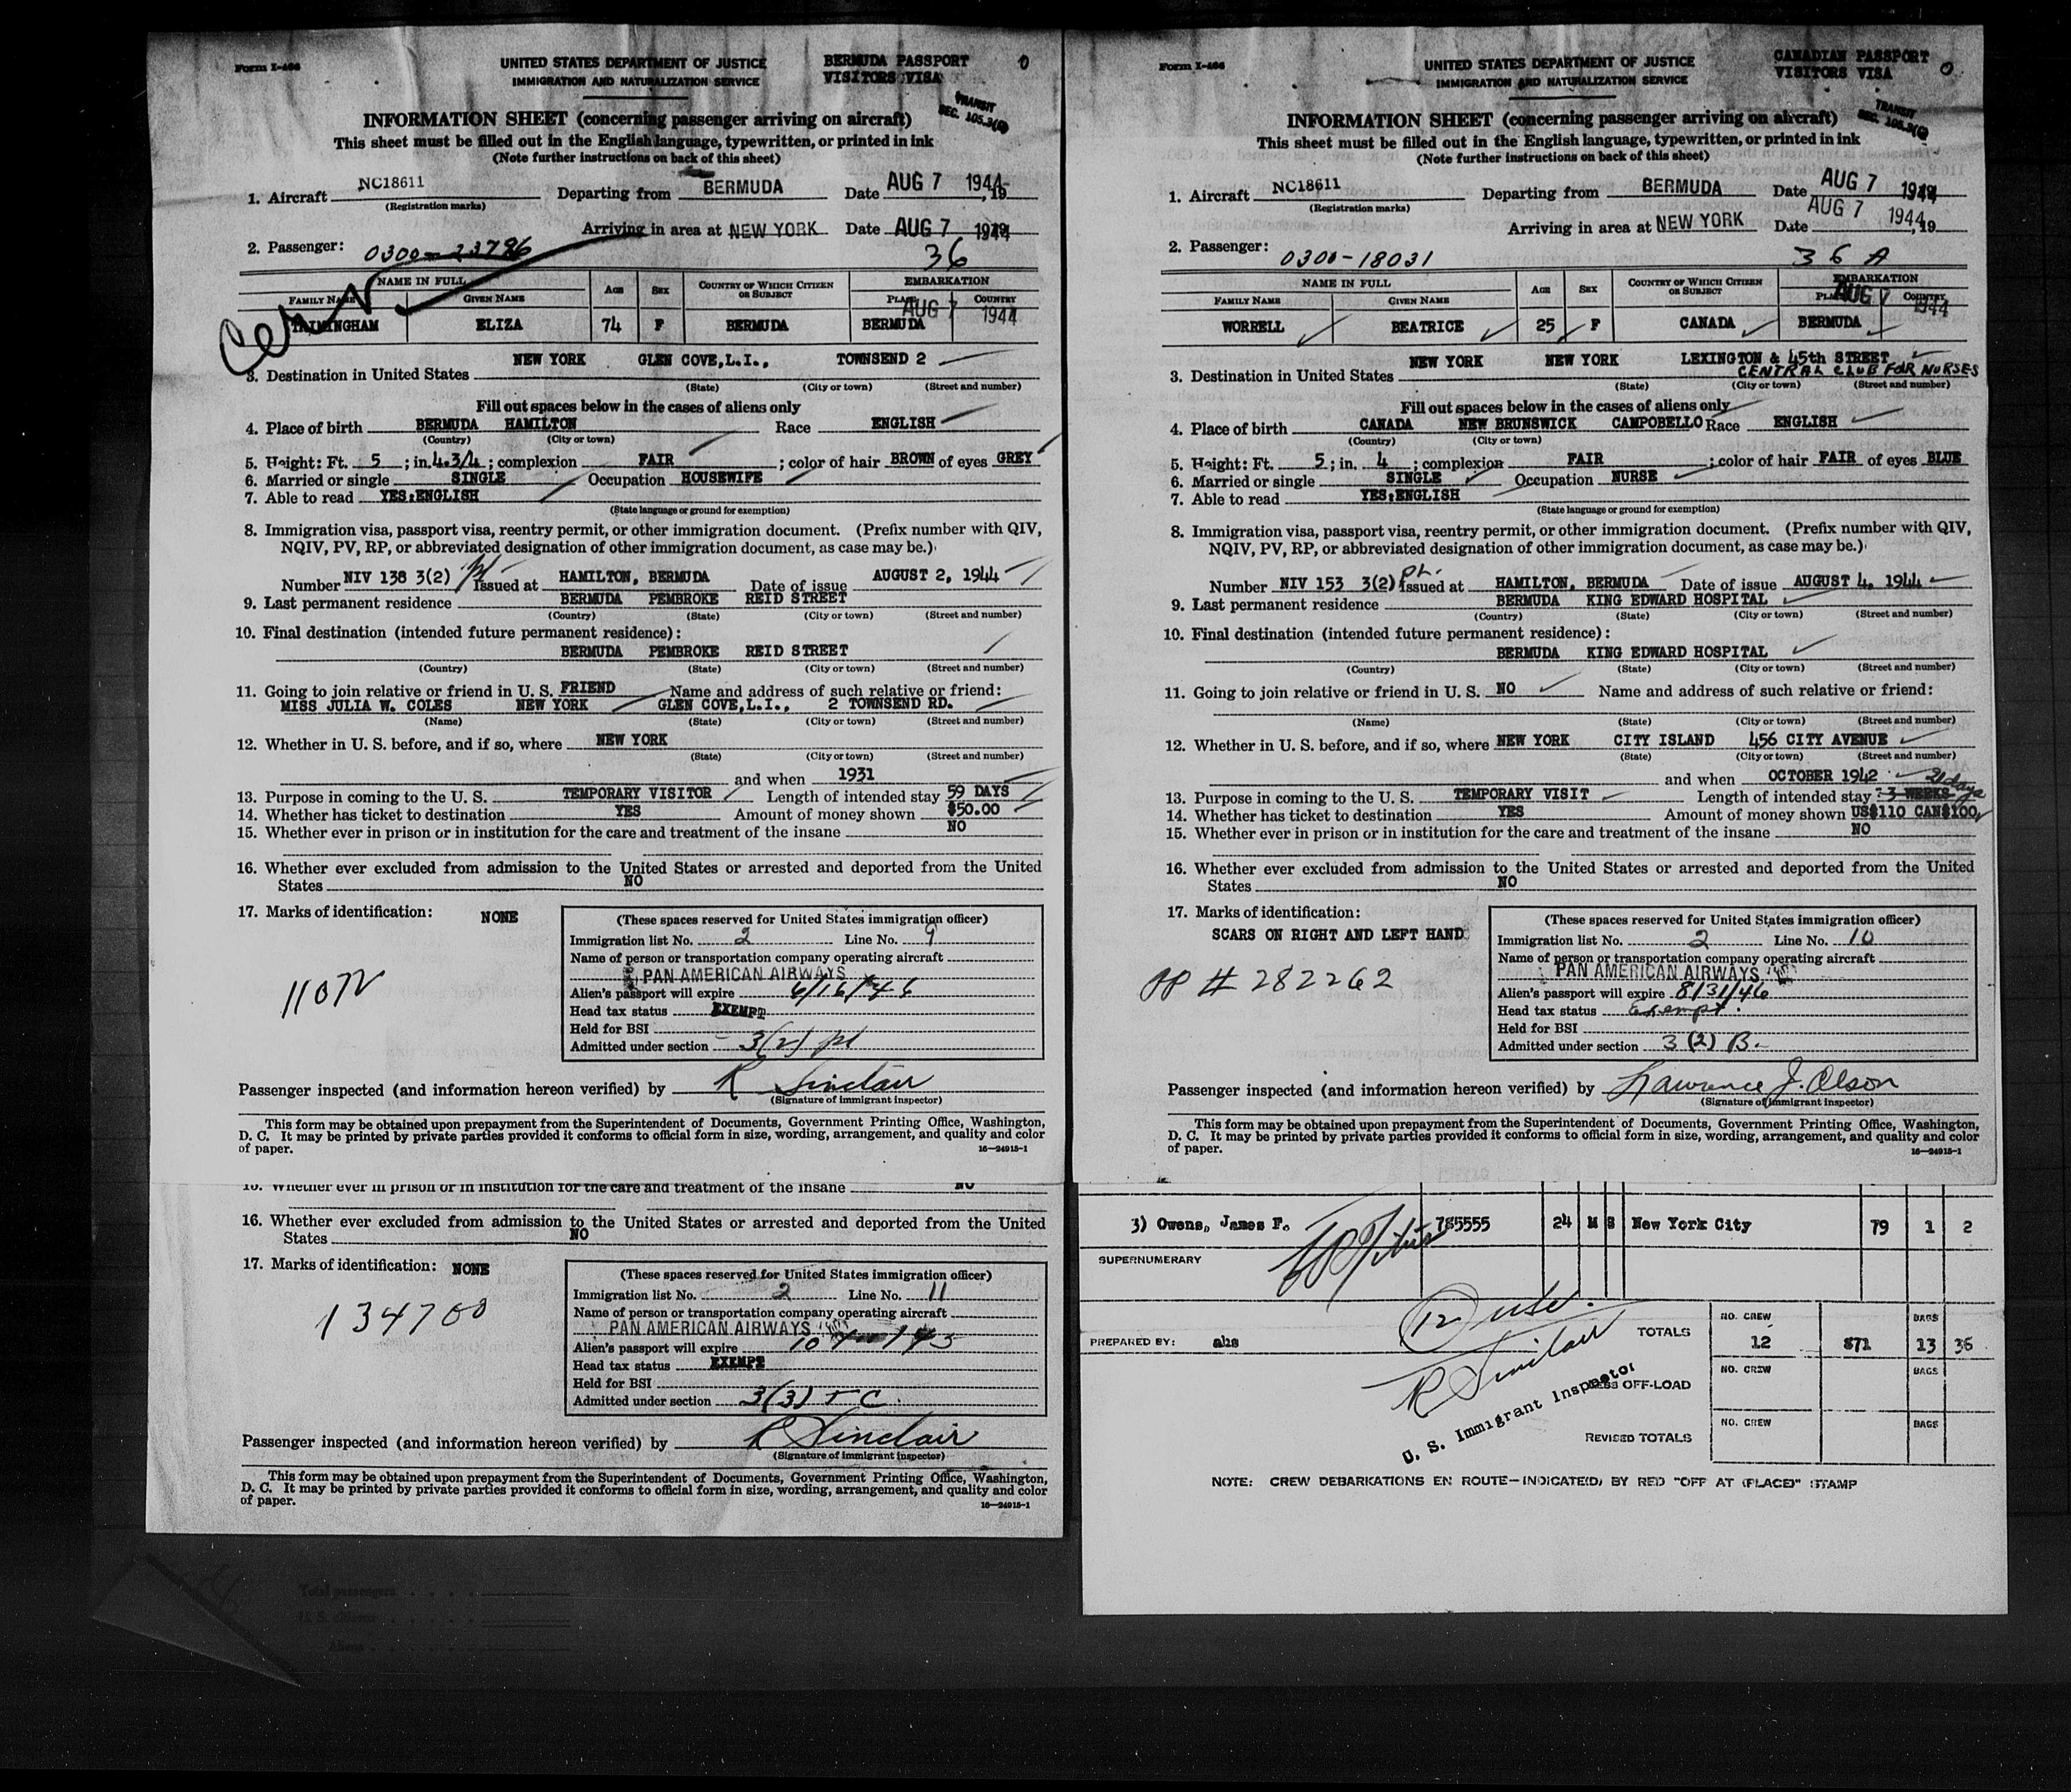 Form I-466
UNITED STATES DEPARTMENT OF JUSTICE
IMMIGRATION AND NATURALIZATION SERVICE
BERMUDA PASSPORT
VISITORS VISA
0
TRANSIT
SEC. 105.3(
INFORMATION SHEET (concerning passenger arriving on aircraft)
This sheet must be filled out in the English language, typewritten, or printed in ink
(Note further instructions on back of this sheet)
1. Aircraft NC18611 Departing from BERMUDA Date AUG 7 1944, 19
(Registration marks)
Arriving in area at NEW YORK Date AUG 7 1944
2. Passenger: 0300-23786 36
NAME IN FULL AGE SEX COUNTRY OF WHICH CITIZEN OR SUBJECT EMBARKATION
FAMILY NAME GIVEN NAME PLACE COUNTRY
AUG 7 1944
TRIMINGHAM ELIZA 74 F BERMUDA BERMUDA
NEW YORK GLEN COVE, L.I., TOWNSEND 2
3. Destination in United States
(State) (City or town) (Street and number)
Fill out spaces below in the cases of aliens only
4. Place of birth BERMUDA HAMILTON Race ENGLISH
(Country) (City or town)
5. Height: Ft. 5 ; in. 4.3/4 ; complexion FAIR ; color of hair BROWN of eyes GREY
6. Married or single SINGLE Occupation HOUSEWIFE
7. Able to read YES:ENGLISH
(State language or ground for exemption)
8. Immigration visa, passport visa, reentry permit, or other immigration document. (Prefix number with QIV,
NQIV, PV, RP, or abbreviated designation of other immigration document, as case may be.)
Number NIV 138 3(2) pl Issued at HAMILTON, BERMUDA Date of issue AUGUST 2, 1944
9. Last permanent residence BERMUDA PEMBROKE REID STREET
(Country) (State) (City or town) (Street and number)
10. Final destination (intended future permanent residence):
BERMUDA PEMBROKE REID STREET
(Country) (State) (City or town) (Street and number)
11. Going to join relative or friend in U. S. FRIEND Name and address of such relative or friend:
MISS JULIA W. COLES NEW YORK GLEN COVE, L.I., 2 TOWNSEND RD.
(Name) (State) (City or town) (Street and number)
12. Whether in U. S. before, and if so, where NEW YORK
(State) (City or town) (Street and number)
and when 1931
13. Purpose in coming to the U. S. TEMPORARY VISITOR Length of intended stay 59 DAYS
14. Whether has ticket to destination YES Amount of money shown $50.00
15. Whether ever in prison or in institution for the care and treatment of the insane NO
16. Whether ever excluded from admission to the United States or arrested and deported from the United
States NO
17. Marks of identification: NONE
(These spaces reserved for United States immigration officer)
Immigration list No. 2 Line No. 9
Name of person or transportation company operating aircraft
PAN AMERICAN AIRWAYS
Alien's passport will expire 6/16/46
Head tax status EXEMPT
Held for BSI
Admitted under section 3(2) pl
Passenger inspected (and information hereon verified) by R Sinclair
(Signature of immigrant inspector)
This form may be obtained upon prepayment from the Superintendent of Documents, Government Printing Office, Washington,
D. C. It may be printed by private parties provided it conforms to official form in size, wording, arrangement, and quality and color
of paper.
16—24915-1
15. Whether ever in prison or in institution for the care and treatment of the insane NO
16. Whether ever excluded from admission to the United States or arrested and deported from the United
States NO
17. Marks of identification: NONE
134700
(These spaces reserved for United States immigration officer)
Immigration list No. 2 Line No. 11
Name of person or transportation company operating aircraft
PAN AMERICAN AIRWAYS
Alien's passport will expire
Head tax status EXEMPT
Held for BSI
Admitted under section 3(3) + C
Passenger inspected (and information hereon verified) by R Sinclair
(Signature of immigrant inspector)
This form may be obtained upon prepayment from the Superintendent of Documents, Government Printing Office, Washington,
D. C. It may be printed by private parties provided it conforms to official form in size, wording, arrangement, and quality and color
of paper.
16—24915-1
Total passengers
U. S. citizens
Aliens
Form I-466
UNITED STATES DEPARTMENT OF JUSTICE
IMMIGRATION AND NATURALIZATION SERVICE
CANADIAN PASSPORT
VISITORS VISA
0
TRANSIT
SEC. 105.3(
INFORMATION SHEET (concerning passenger arriving on aircraft)
This sheet must be filled out in the English language, typewritten, or printed in ink
(Note further instructions on back of this sheet)
1. Aircraft NC18611 Departing from BERMUDA Date AUG 7 1944
(Registration marks)
Arriving in area at NEW YORK Date AUG 7 1944, 19
2. Passenger: 0300-18031 36 A
NAME IN FULL AGE SEX COUNTRY OF WHICH CITIZEN OR SUBJECT EMBARKATION
FAMILY NAME GIVEN NAME PLACE COUNTRY
AUG 7 1944
WORRELL BEATRICE 25 F CANADA BERMUDA
NEW YORK NEW YORK LEXINGTON & 45th STREET
3. Destination in United States CENTRAL CLUB FOR NURSES
(State) (City or town) (Street and number)
Fill out spaces below in the cases of aliens only
4. Place of birth CANADA NEW BRUNSWICK CAMPOBELLO Race ENGLISH
(Country) (City or town)
5. Height: Ft. 5 ; in. 4 ; complexion FAIR ; color of hair FAIR of eyes BLUE
6. Married or single SINGLE Occupation NURSE
7. Able to read YES:ENGLISH
(State language or ground for exemption)
8. Immigration visa, passport visa, reentry permit, or other immigration document. (Prefix number with QIV,
NQIV, PV, RP, or abbreviated designation of other immigration document, as case may be.)
Number NIV 153 3(2) PL. Issued at HAMILTON, BERMUDA Date of issue AUGUST 4, 1944
9. Last permanent residence BERMUDA KING EDWARD HOSPITAL
(Country) (State) (City or town) (Street and number)
10. Final destination (intended future permanent residence):
BERMUDA KING EDWARD HOSPITAL
(Country) (State) (City or town) (Street and number)
11. Going to join relative or friend in U. S. NO Name and address of such relative or friend:
(Name) (State) (City or town) (Street and number)
12. Whether in U. S. before, and if so, where NEW YORK CITY ISLAND 456 CITY AVENUE
(State) (City or town) (Street and number)
and when OCTOBER 1942 21 days
13. Purpose in coming to the U. S. TEMPORARY VISIT Length of intended stay 3 WEEKS
14. Whether has ticket to destination YES Amount of money shown US$110 CAN$100
15. Whether ever in prison or in institution for the care and treatment of the insane NO
16. Whether ever excluded from admission to the United States or arrested and deported from the United
States NO
17. Marks of identification:
SCARS ON RIGHT AND LEFT HAND
PP # 282262
(These spaces reserved for United States immigration officer)
Immigration list No. 2 Line No. 10
Name of person or transportation company operating aircraft
PAN AMERICAN AIRWAYS
Alien's passport will expire 8/31/46
Head tax status Exempt.
Held for BSI
Admitted under section 3 (2) B-
Passenger inspected (and information hereon verified) by Lawrence J. Olson
(Signature of immigrant inspector)
This form may be obtained upon prepayment from the Superintendent of Documents, Government Printing Office, Washington,
D. C. It may be printed by private parties provided it conforms to official form in size, wording, arrangement, and quality and color
of paper.
16—24915-1
3) Owens, James F. 785555 24 M S New York City 79 1 2
SUPERNUMERARY
PREPARED BY: TOTALS NO. CREW 12 871 BAGS 13 36
R Sinclair
U. S. Immigrant Inspector
LESS OFF-LOAD NO. CREW BAGS
REVISED TOTALS NO. CREW BAGS
NOTE: CREW DEBARKATIONS EN ROUTE—INDICATE(D) BY RED "OFF AT (PLACE)" STAMP